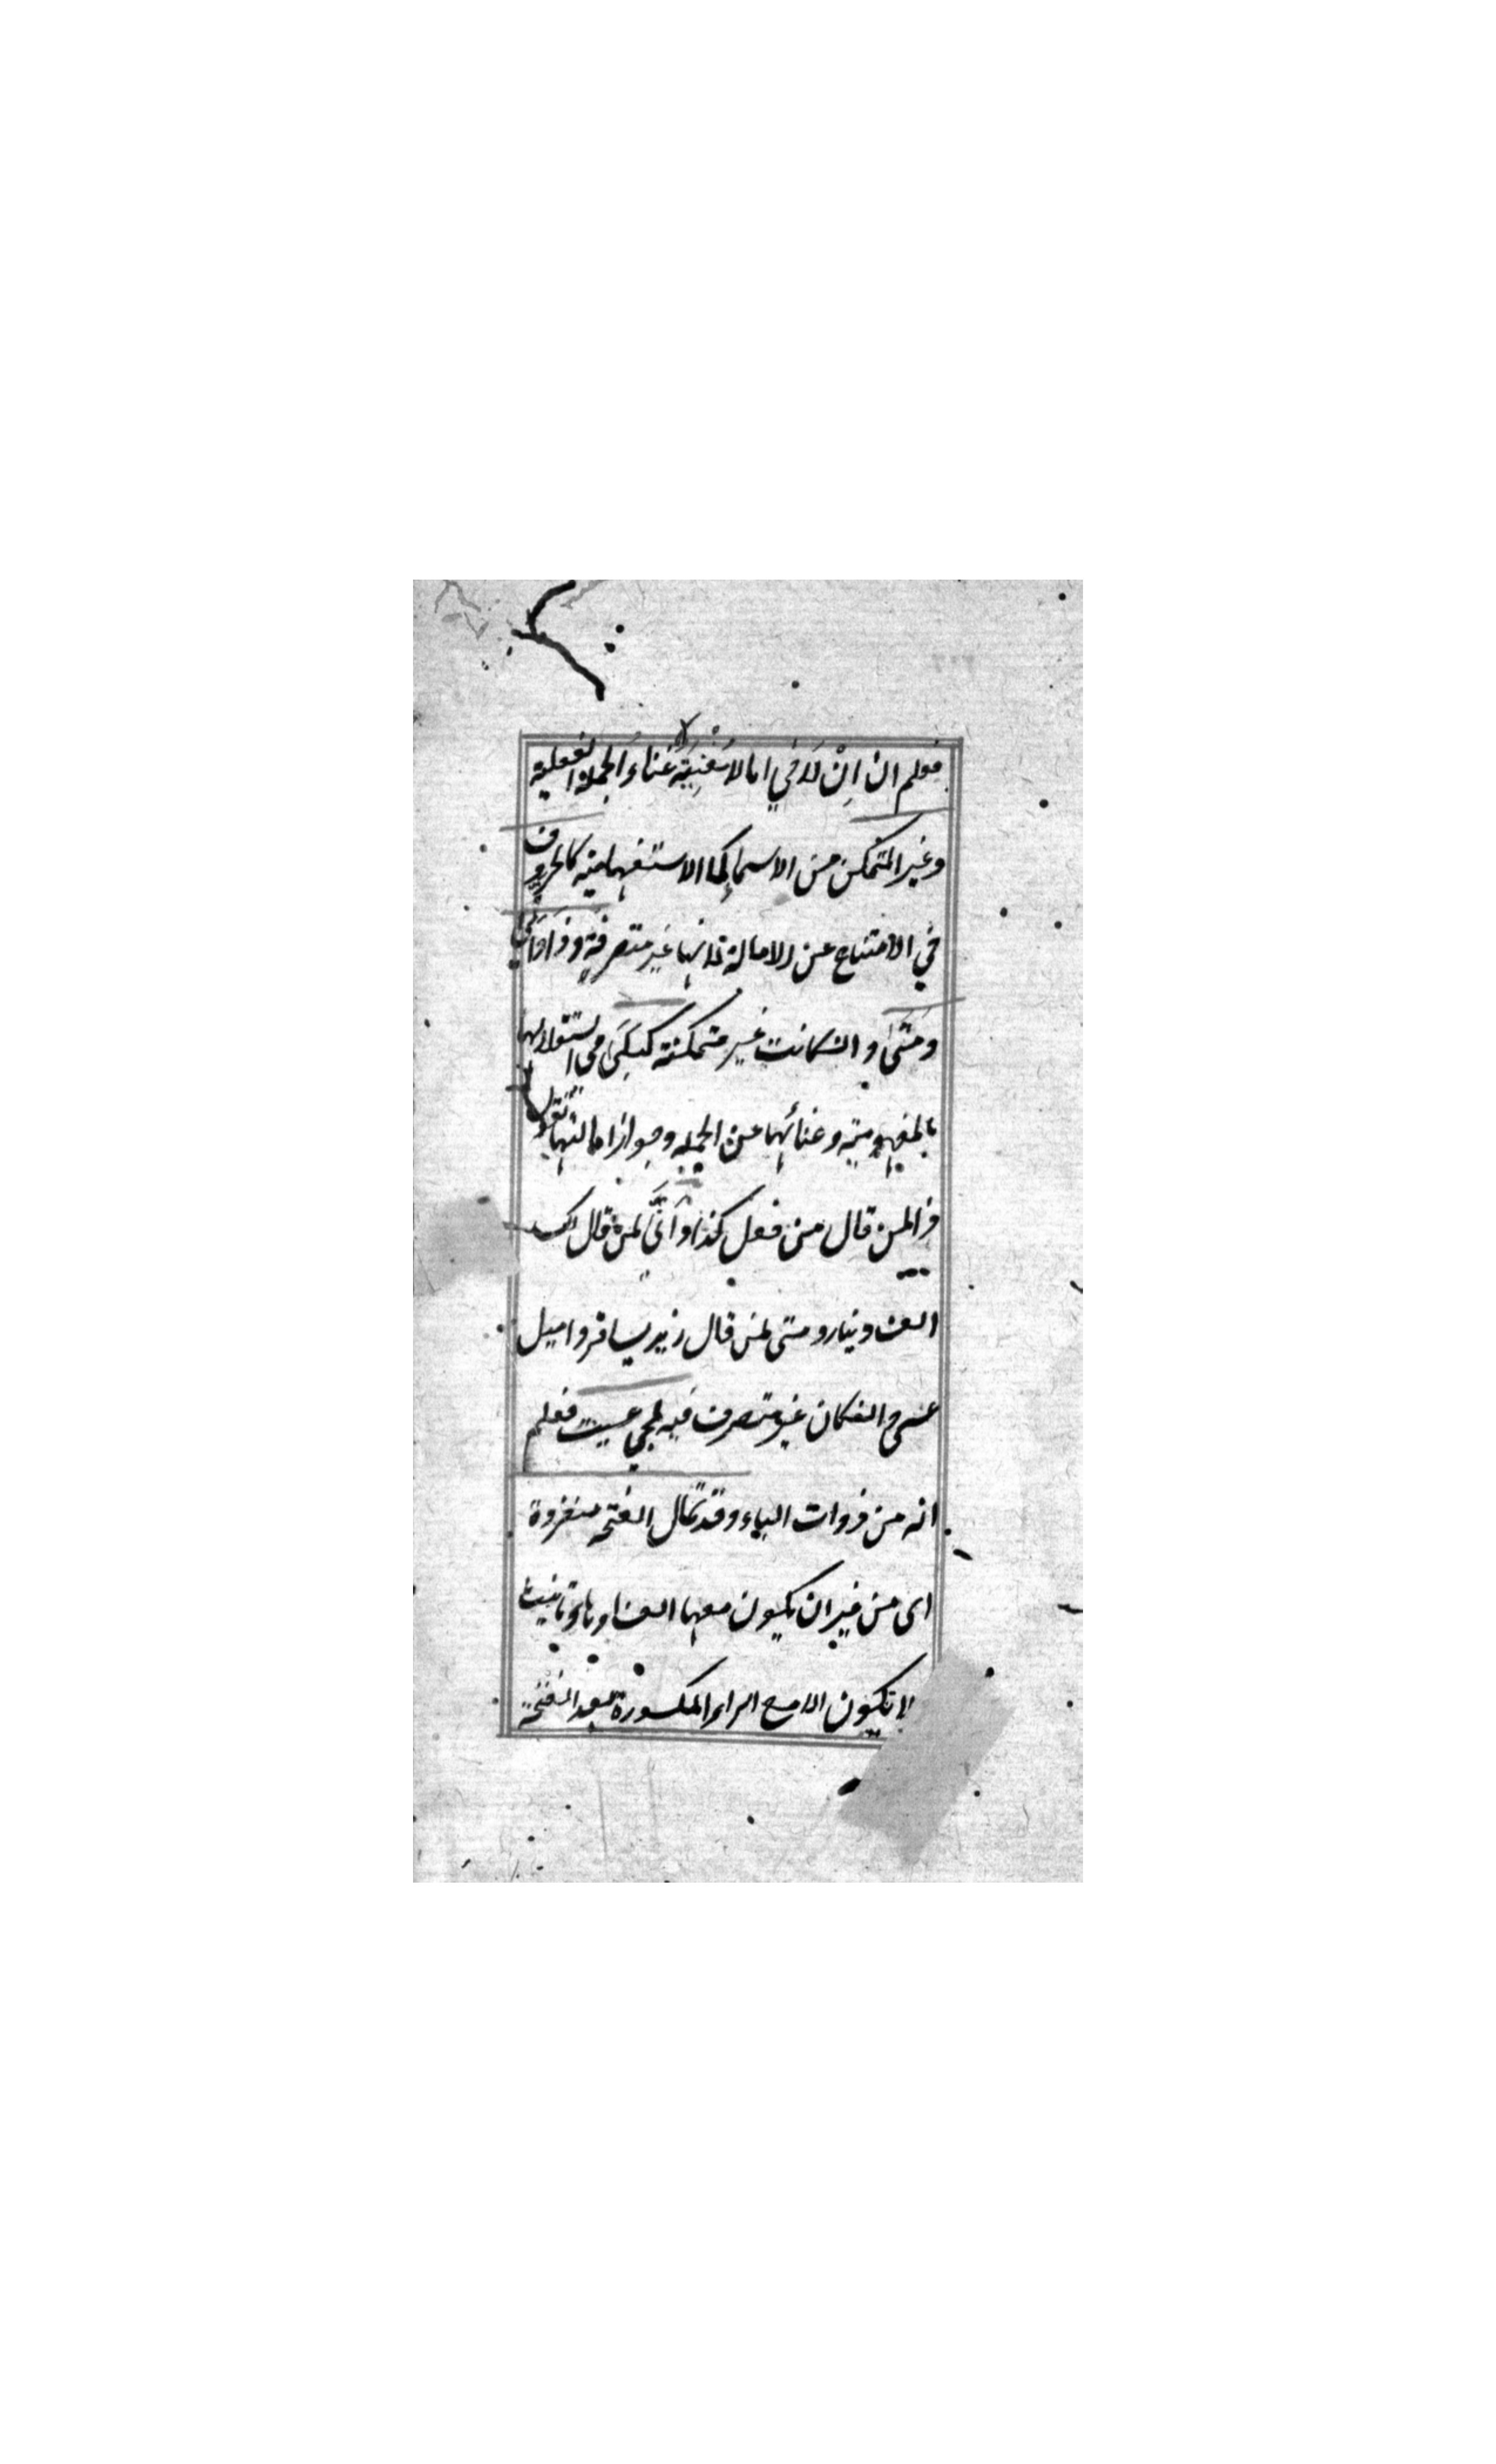 فعلم ان اِنْ لَا فِي امالا مُغْنِيَة غناءَ الجملة الفعلية
وغير المتمكن من الاسماء كما الاستفهامية كالحروف
في الامتناع عن الامالة فانها غير متصرفة وذا وأنّى
ومتى وان كانت غير متمكنة كبلى في استقلالها
بالمفهومية وغنائها عن الجملة وجواز امالتها تقول
ذا لمن قال من فعل كذا وأنّى لمن قال لك
الف دينار ومتى لمن قال زيد يسافر واميل
عسى وان كان غير متصرف فيه لمجي عسيت فعلم
انه من ذوات الياء وقد تمال الفتحة منفردة
اى من غير ان يكون معها الف او هاء تانيث
لا تكون الا مع الراء المكسورة بعد الفتحة